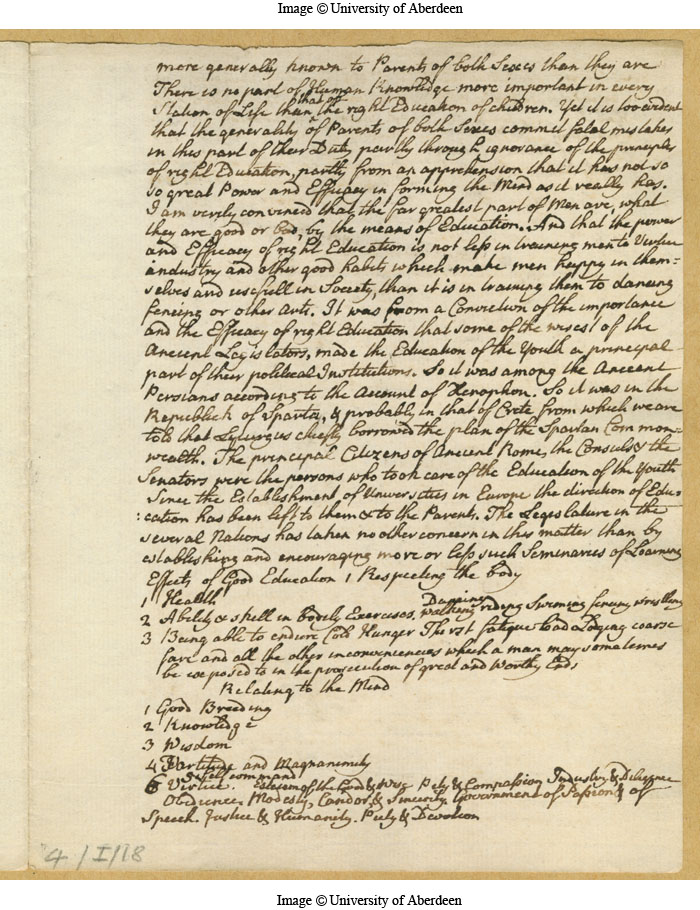 Image © University of Aberdeen
more generally known to Parents of both Sexes than they are
There is no part of Human Knowledge more important in every
Station of Life than that the right Education of children. Yet it is too evident
that the generality of Parents of both Sexes commit fatal mistakes
in this part of their Duty, partly through ignorance of the principles
of right Education, partly from an apprehension that it has not so
so great Power and Efficacy in forming the Mind as it really has.
I am verily convinced that the far greatest part of Men are, what
they are good or bad, by the means of Education. And that the power
and Efficacy of right Education is not less in training men to Virtue
industry and other good habits which make men happy in them=
selves and usefull in Society, than it is in training them to dancing
fencing or other Arts. It was from a Conviction of the importance
and the Efficacy of right Education that some of the wisest of the
Ancient Legislators, made the Education of the Youth a principal
part of their political Institutions. So it was among the Ancient
Persians according to the Account of Xenophon. So it was in the
Republick of Sparta, & probably in that of Crete from which we are
told that Lycurgus chiefly borrowed the plan of the Spartan Common=
wealth. The principal Citizens of Ancient Rome, the Consuls & the
Senators were the persons who took care of the Education of the Youth
Since the Establishment of Universities in Europe the direction of Edu:
:cation has been left to them & to the Parents. The Legislature in the
several Nations has taken no other concern in this matter than by
establishing and encouraging more or less such Seminaries of Learning
Effects of Good Education 1 Respecting the body
1 Health
2 Ability & skill in bodily Exercises. Dancing walking riding Swiming fencing wrestling
3 Being able to endure Cold Hunger Thirst fatigue bad Lodging coarse
fare and all the other inconveniences which a man may sometimes
be exposed to in the prosecution of great and Worthy Ends
Relating to the Mind
1 Good Breeding
2 Knowledge
3 Wisdom
4 Fortitude and Magnanimity
Self command
6 Virtue. Esteem of the Good & Wise Pity & Compassion Industry & Diligence
Obedience, Modesty, Candor & Sincerity. Government of Passion & of
Speech. Justice & Humanity. Piety & Devotion
4/I/18
Image © University of Aberdeen